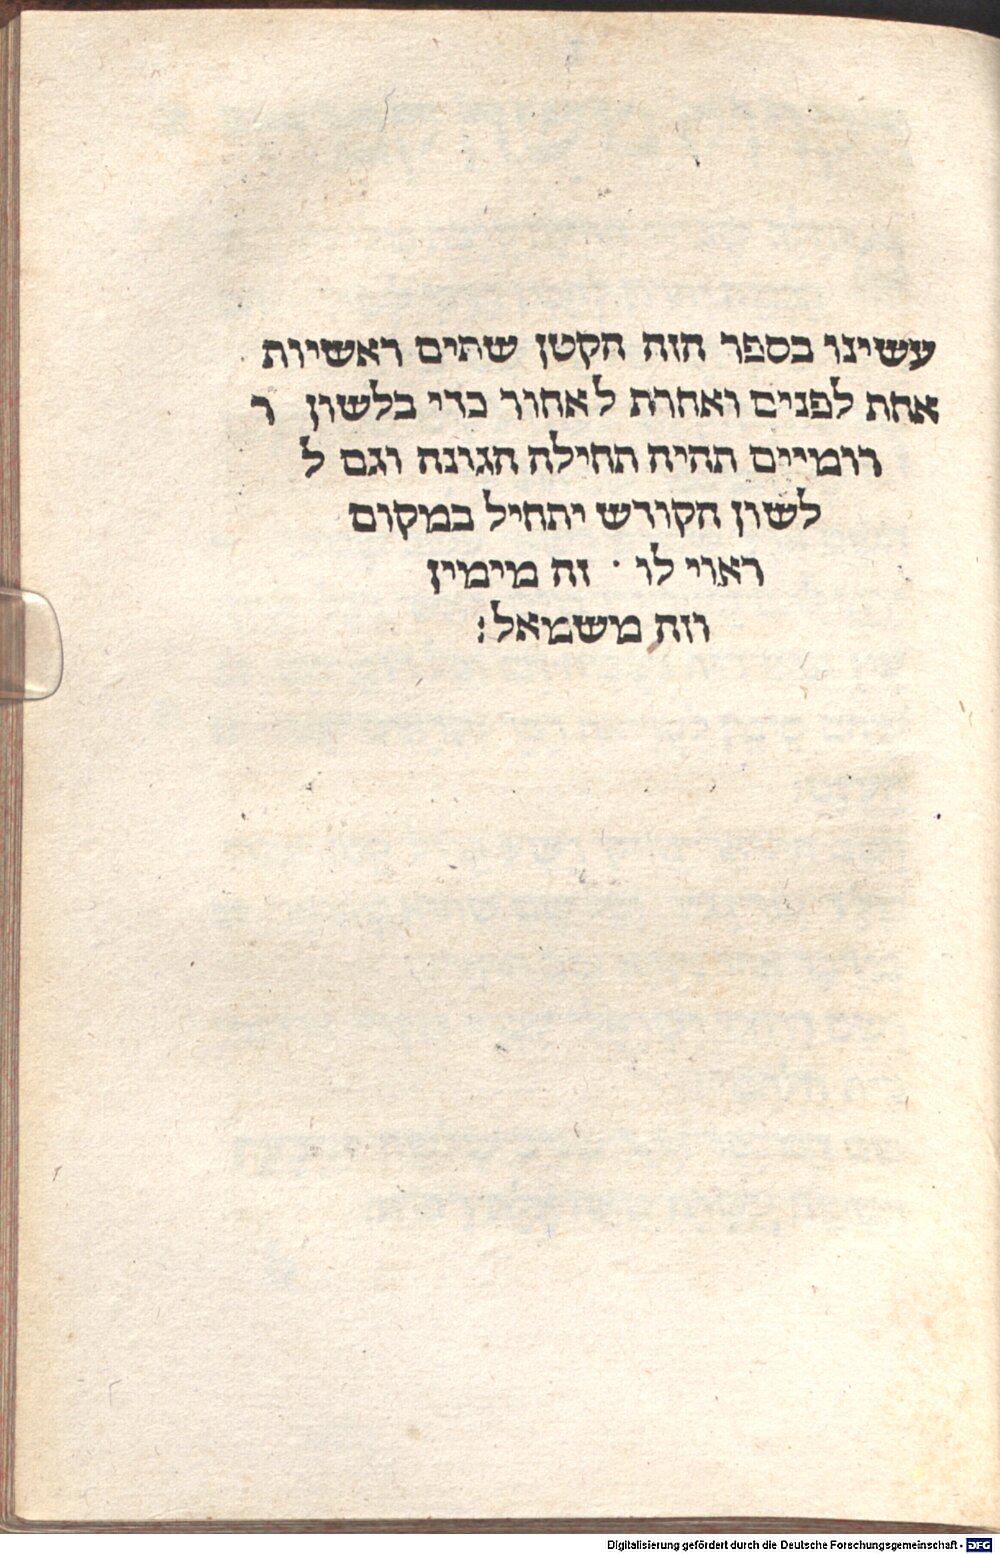 עשינו בספר הזה הקטן שתים ראשיות
אחת לפנים ואחרת לאחור כדי בלשון ר
רומיים תהיה תחילה הגונה וגם ל
לשון הקודש יתחיל במקום
ראוי לו · זה מימין
וזה משמאל:
Digitalisierung gefördert durch die Deutsche Forschungsgemeinschaft - DFG